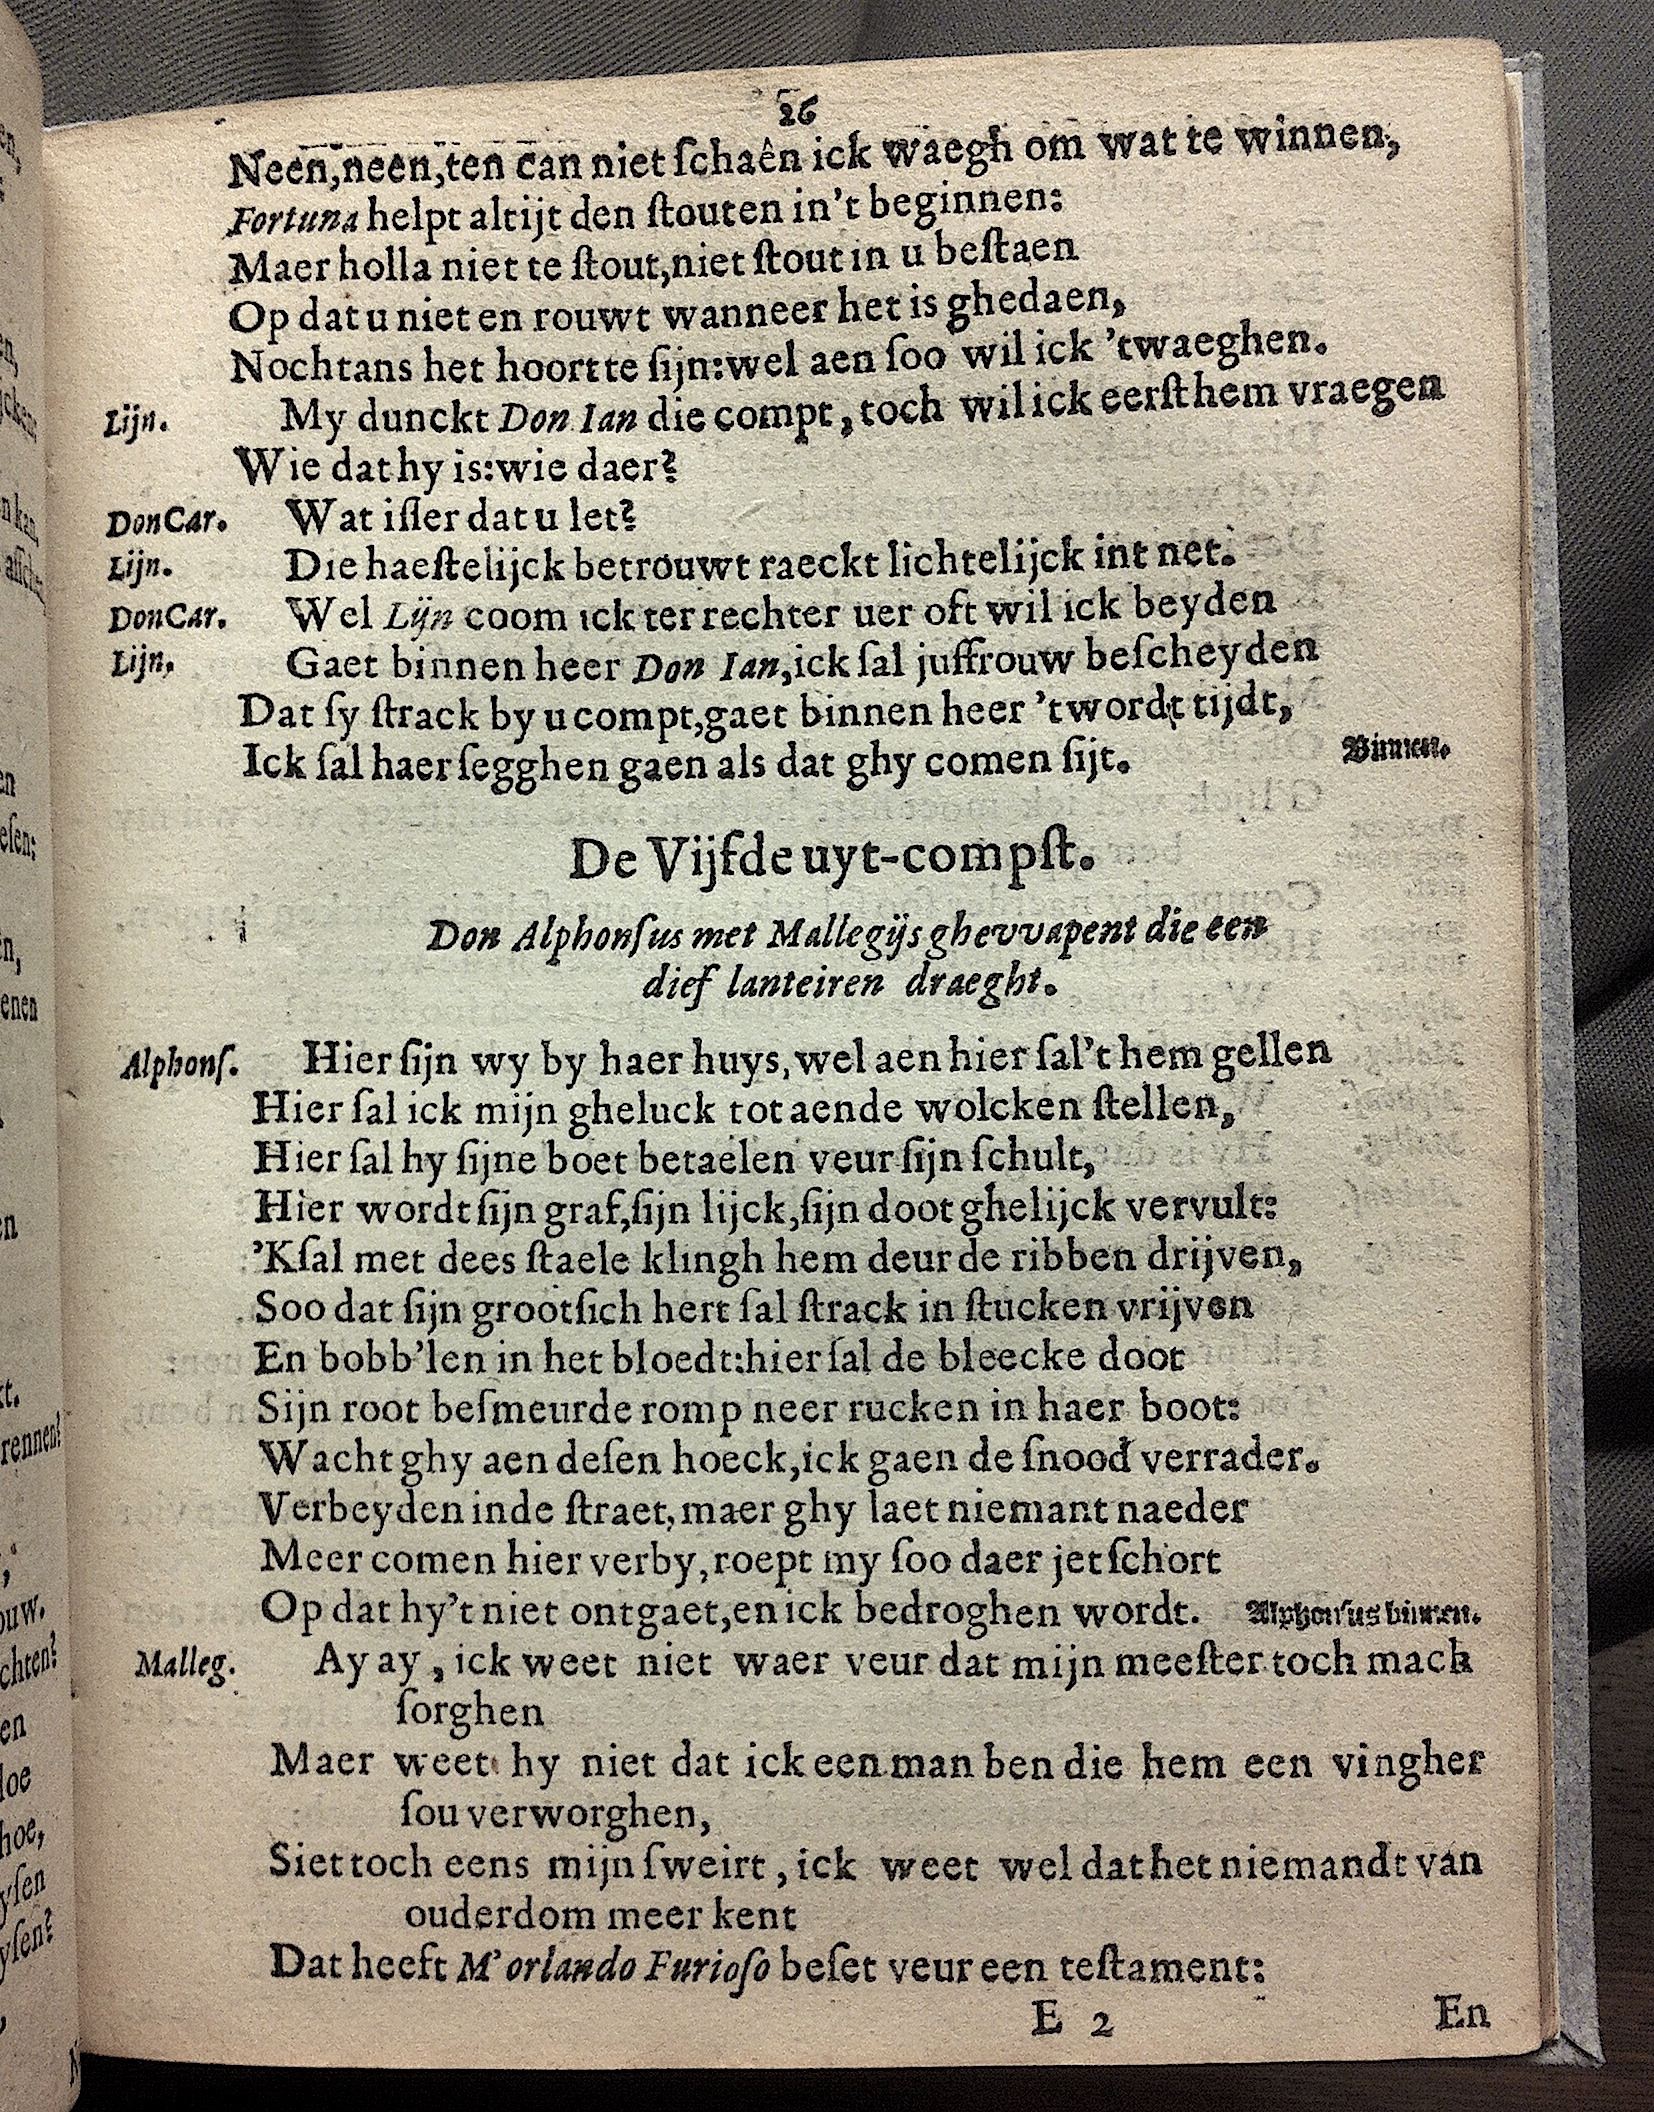 26
Neen,neen,ten can niet ſchaên ick waegh om wat te winnen,
Fortuna helpt altijt den ſtouten in't beginnen:
Maer holla niet te ſtout,niet ſtout in u beſtaen
Op dat u niet en rouwt wanneer het is ghedaen,
Nochtans het hoort te ſijn:wel aen ſoo wil ick 'twaeghen.
Lijn. My dunckt Don Ian die compt, toch wil ick eerſt hem vraegen
Wie dat hy is:wie daer?
Don Car. Wat iſſer dat u let?
Lijn. Die haeſtelijck betrouwt raeckt lichtelijck int net.
Don Car. Wel Lijn coom ick ter rechter uer oft wil ick beyden
Lijn. Gaet binnen heer Don Ian,ick ſal juffrouw beſcheyden
Dat ſy ſtrack by u compt,gaet binnen heer 'twordt tijdt,
Ick ſal haer ſegghen gaen als dat ghy comen ſijt. Binnen.
De Vijfde uyt-compſt.
Don Alphonſus met Mallegijs ghevvapent die een
dief lanteiren draeght.
Alphonſ. Hier ſijn wy by haer huys, wel aen hier ſal't hem gellen
Hier ſal ick mijn gheluck tot aende wolcken ſtellen,
Hier ſal hy ſijne boet betaelen veur ſijn ſchult,
Hier wordt ſijn graf,ſijn lijck,ſijn doot ghelijck vervult:
'Kſal met dees ſtaele klingh hem deur de ribben drijven,
Soo dat ſijn grootſich hert ſal ſtrack in ſtucken vrijven
En bobb'len in het bloedt:hier ſal de bleecke doot
Sijn root beſmeurde romp neer rucken in haer boot:
Wacht ghy aen deſen hoeck,ick gaen de ſnood verrader.
Verbeyden inde ſtraet, maer ghy laet niemant naeder
Meer comen hier verby, roept my ſoo daer jet ſchort
Op dat hy't niet ontgaet,en ick bedroghen wordt. Alphonſus binnen.
Malleg. Ay ay, ick weet niet waer veur dat mijn meeſter toch mach
ſorghen
Maer weet hy niet dat ick een man ben die hem een vingher
ſou verworghen,
Siet toch eens mijn ſweirt, ick weet wel dat het niemandt van
ouderdom meer kent
Dat heeft M'orlando Furioſo beſet veur een teſtament:
E 2 En